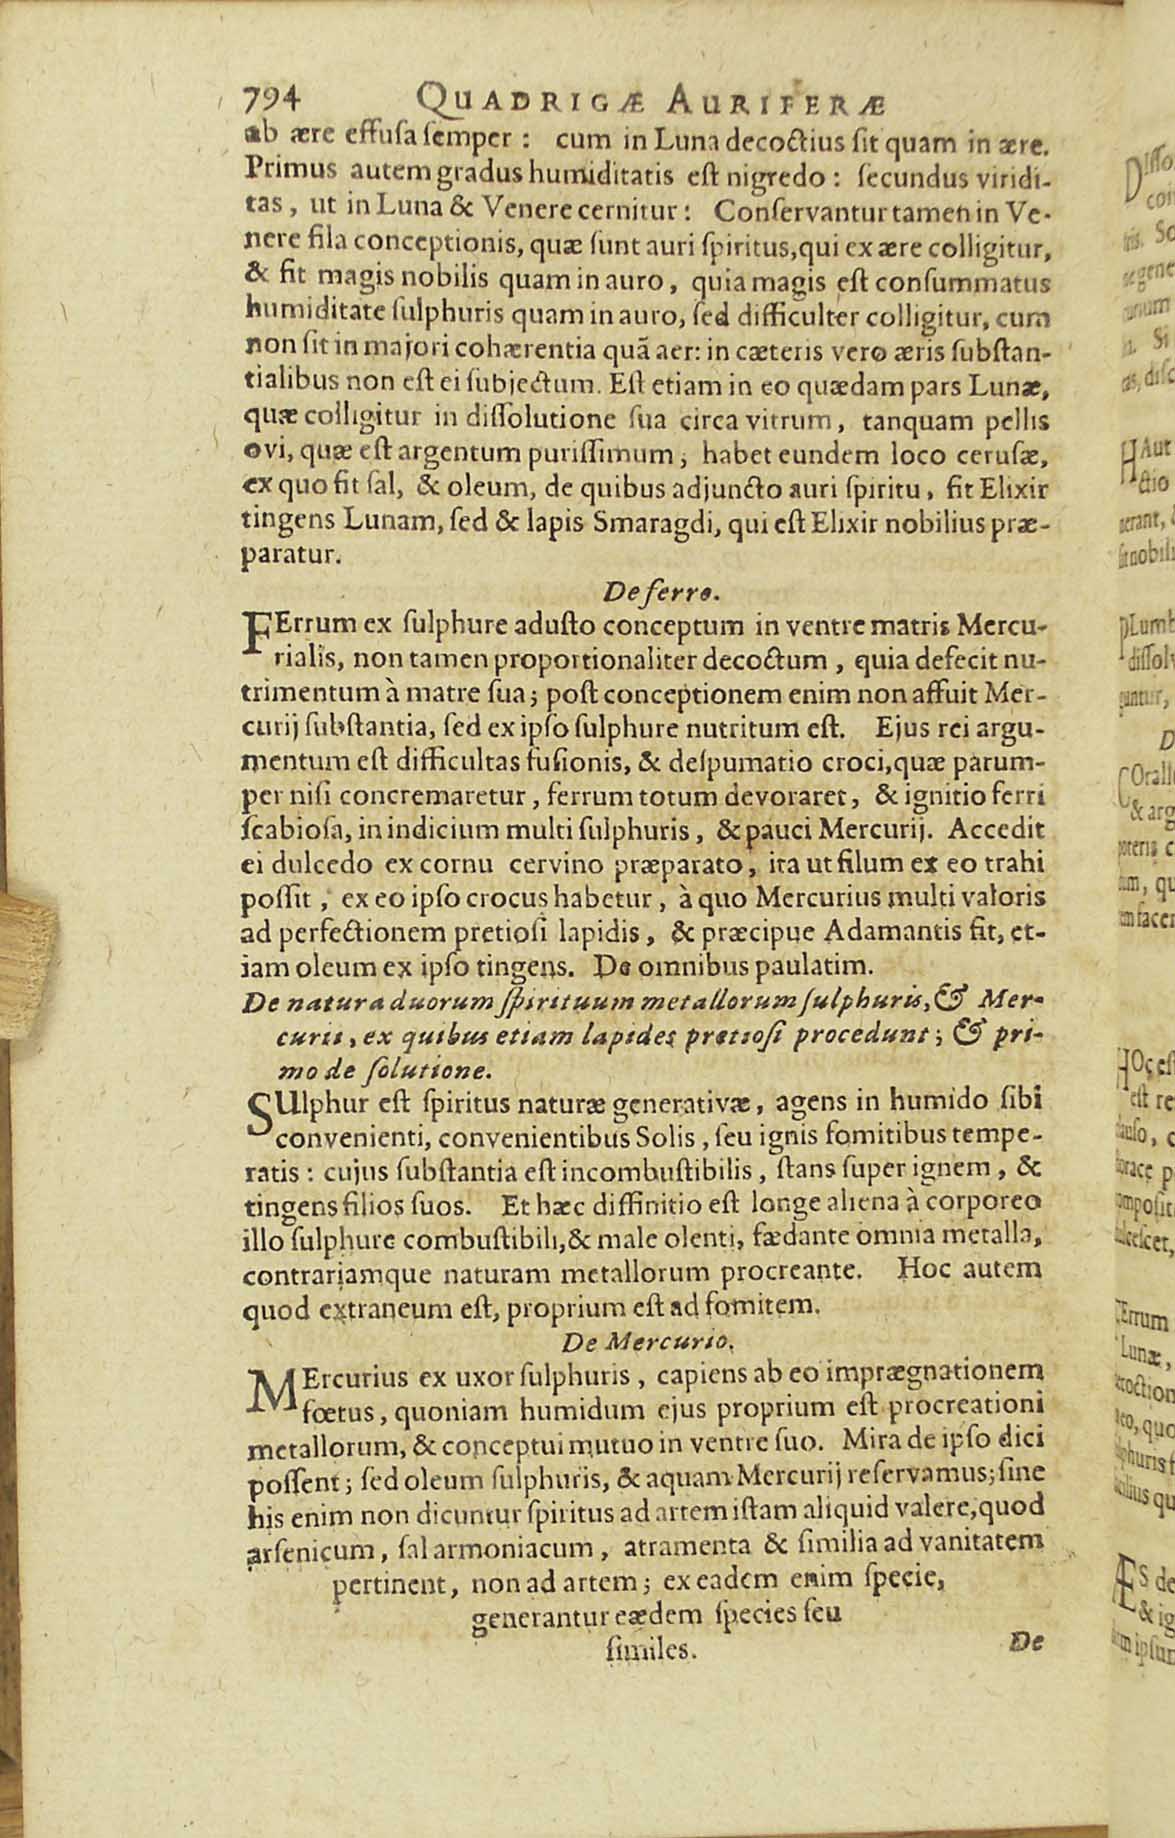 794 QUADRIGÆ AURIFERÆ
ab ære effuſa ſemper : cum in Luna decoctius ſit quam in ære.
Primus autem gradus humiditatis eſt nigredo : ſecundus viridi-
tas, ut in Luna & Venere cernitur : Conſervantur tamen in Ve-
nere fila conceptionis, quæ ſunt auri ſpiritus, qui ex ære colligitur,
& fit magis nobilis quam in auro, quia magis eſt conſummatus
humiditate ſulphuris quam in auro, ſed difficulter colligitur, cum
non ſit in majori cohærentia quã aer: in cæteris vero æris ſubſtan-
tialibus non eſt ei ſubjectum. Eſt etiam in eo quædam pars Lunæ,
quæ colligitur in diſſolutione ſua circa vitrum, tanquam pellis
ovi, quæ eſt argentum puriſſimum ; habet eundem loco ceruſæ,
ex quo fit ſal, & oleum, de quibus adjuncto auri ſpiritu, fit Elixir
tingens Lunam, ſed & lapis Smaragdi, qui eſt Elixir nobilius præ-
paratur.
De ferro.
FErrum ex ſulphure aduſto conceptum in ventre matris Mercu-
rialis, non tamen proportionaliter decoctum, quia defecit nu-
trimentum à matre ſua ; poſt conceptionem enim non affuit Mer-
curij ſubſtantia, ſed ex ipſo ſulphure nutritum eſt. Ejus rei argu-
mentum eſt difficultas fuſionis, & deſpumatio croci, quæ parum-
per niſi concremaretur, ferrum totum devoraret, & ignitio ferri
ſcabioſa, in indicium multi ſulphuris, & pauci Mercurij. Accedit
ei dulcedo ex cornu cervino præparato, ita ut filum ex eo trahi
poſſit, ex eo ipſo crocus habetur, à quo Mercurius multi valoris
ad perfectionem pretioſi lapidis, & præcipue Adamantis fit, et-
iam oleum ex ipſo tingens. De omnibus paulatim.
De natura duorum ſpirituum metallorum ſulphuris, & Mer-
curii, ex quibus etiam lapides pretioſi procedunt ; & pri-
mo de ſolutione.
SUlphur eſt ſpiritus naturæ generativæ, agens in humido ſibi
convenienti, convenientibus Solis, ſeu ignis fomitibus tempe-
ratis : cujus ſubſtantia eſt incombuſtibilis, ſtans ſuper ignem, &
tingens filios ſuos. Et hæc diffinitio eſt longe aliena à corporeo
illo ſulphure combuſtibili, & male olenti, fædante omnia metalla,
contrariamque naturam metallorum procreante. Hoc autem
quod extraneum eſt, proprium eſt ad fomitem.
De Mercurio.
MErcurius ex uxor ſulphuris, capiens ab eo imprægnationem
fœtus, quoniam humidum ejus proprium eſt procreationi
metallorum, & conceptui mutuo in ventre ſuo. Mira de ipſo dici
poſſent ; ſed oleum ſulphuris, & aquam Mercurij reſervamus; ſine
his enim non dicuntur ſpiritus ad artem iſtam aliquid valere, quod
arſenicum, ſal armoniacum, atramenta & ſimilia ad vanitatem
pertinent, non ad artem ; ex eadem enim ſpecie,
generantur eædem ſpecies ſeu
ſimiles.
De